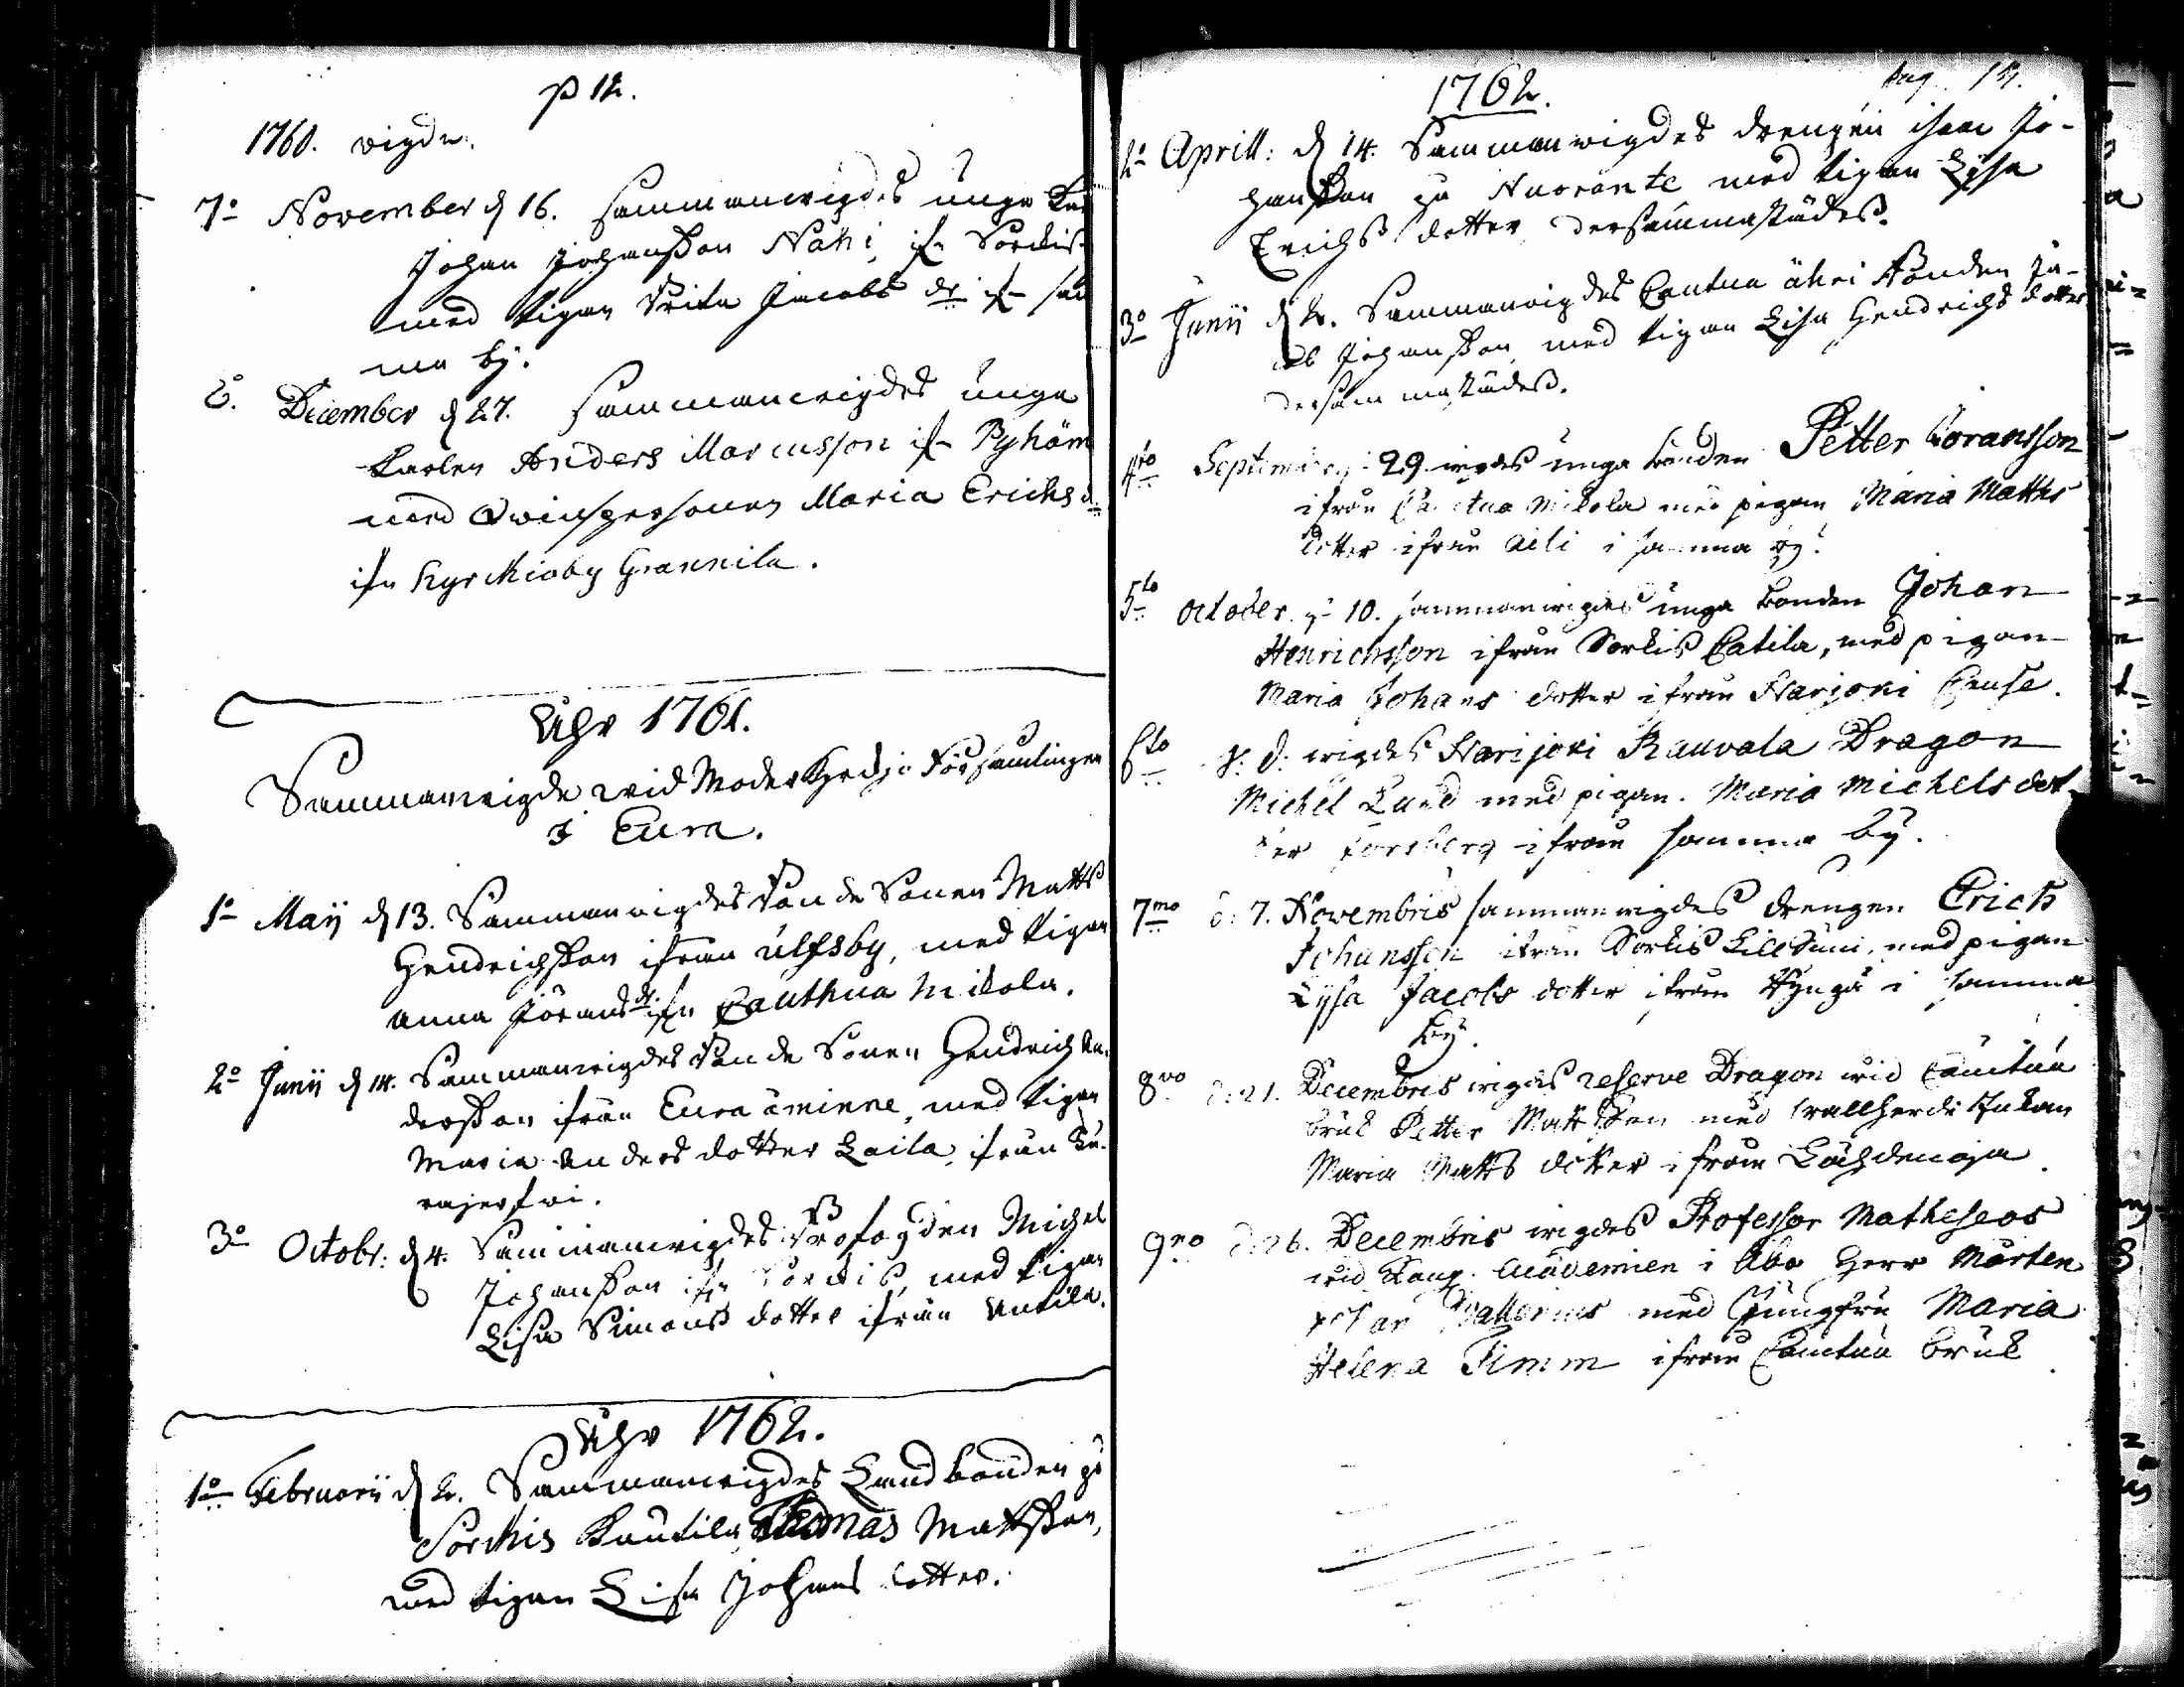 p 12.
1760. vigde.
7o November d 16. Sammanvigdes unga
Johan Johansson Nahi if. Sorkis
med Pigan Brita Jacobs dr if. sam
ma by.
8. December d 27. Sammanvigdes unga
Karlen Anders Marcusson if. Pyhäm
med Qvinspersonen Maria Erichs dr
ifn Kyrckioby Grannila.
Åhr 1761.
Sammanvigde vid Moderkyrckio Församlingen
i Eura.
1o Maij d 13. Sammanvigdes Bonde Sonen Matts
Hendrichsson ifrån Ulfsby, med Pigan
Anna Jörans dr ifn Cauthua Mickola.
2o Junii d 14. Sammanvigdes Bonde Sonen Hendrich An-
dersson ifrån Eura åminne, med Pigan
Maria Anders dotter Laila, ifrån
rajerfwi.
3o Octobr: d 4. Sammanvigdes Profogden Michel
Johansson ifn Sorkis, med Pigan
Lisa Simons dotter ifrån Antila.
Åhr 1762.
1o Februarii d 2. Sammanvigdes Landbonden på
Sorckis Kautila Thomas Mattsson,
med Pigan Lisa Johans dotter.
1762. Pag. 13.
2o Aprill: d 14. Sammanvigdes Drengen Isac Jo-
hansson på Nuoranne med Pigan Lysa
Erichs dotter dersammastädes.
3o Junii d 2. Sammanvigdes Cautua åhri Bonden Ja-
cob Johansson, med Pigan Lisa Hendrichs dotter
dersammastädes.
4to September: 29. vigdes unga Bonden Petter Göransson
ifrån Cautua Mickola med pigan Maria Matts
dotter ifrån Aili i samma by.
5to October. d 10. sammanvigdes unga Bonden Johan
Henrichsson ifrån Sorkis Catila, med pigan
Maria Johans dotter ifrån Harjoki Cause.
6to d: d: vigdes Harijoki Rauvala Dragon
Michel Lund med pigan. Maria Michels dot-
ter Forsberg ifrån samma by.
7mo d: 7. Novembris sammanvigdes drengen Erich
Johansson ifrån Sorkis Lillsuni, med pigan
Lysa Jacobs dotter ifrån i samma
by.
8vo d: 21. Decembris vigdes reserve Dragon vid Cautua
Bruk Petter Mattsson med Vallherde Enkan
Maria Matts dotter ifrån Lähdenoja.
9no d: 26. Decembris vigdes Professor Matheseos
vid Kong. Academien i Abo Herr Mårten
Johan Wallenius med Jungfru Maria
Helena Timm ifrån Cautua Bruk.